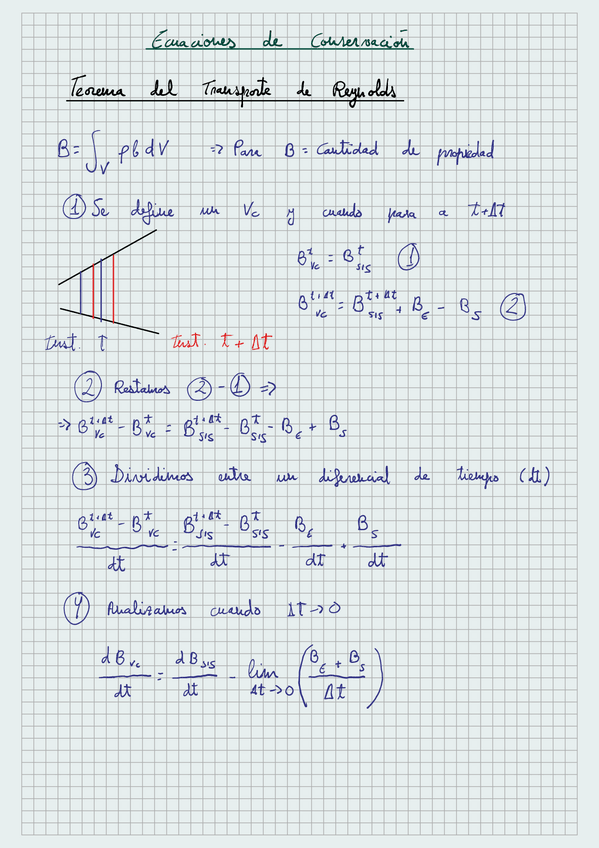 Ecuaciones de Conservación
Teorema del Transporte de Reynolds
B = ∫_V ρ b dV => Para B = Cantidad de propiedad
① Se define un Vc y cuando pasa a t+Δt
B^t_vc = B^t_SIS ①
B^{t+Δt}_vc = B^{t+Δt}_SIS + B_E - B_S ②
Inst. t Inst. t + Δt
② Restamos ② - ① =>
=> B^{t+Δt}_vc - B^t_vc = B^{t+Δt}_SIS - B^t_SIS - B_E + B_S
③ Dividimos entre un diferencial de tiempo (dt)
(B^{t+Δt}_vc - B^t_vc)/dt = (B^{t+Δt}_SIS - B^t_SIS)/dt - B_E/dt + B_S/dt
④ Analizamos cuando Δt → 0
dB_vc/dt = dB_SIS/dt - lim_{Δt→0} ((B_E + B_S)/Δt)